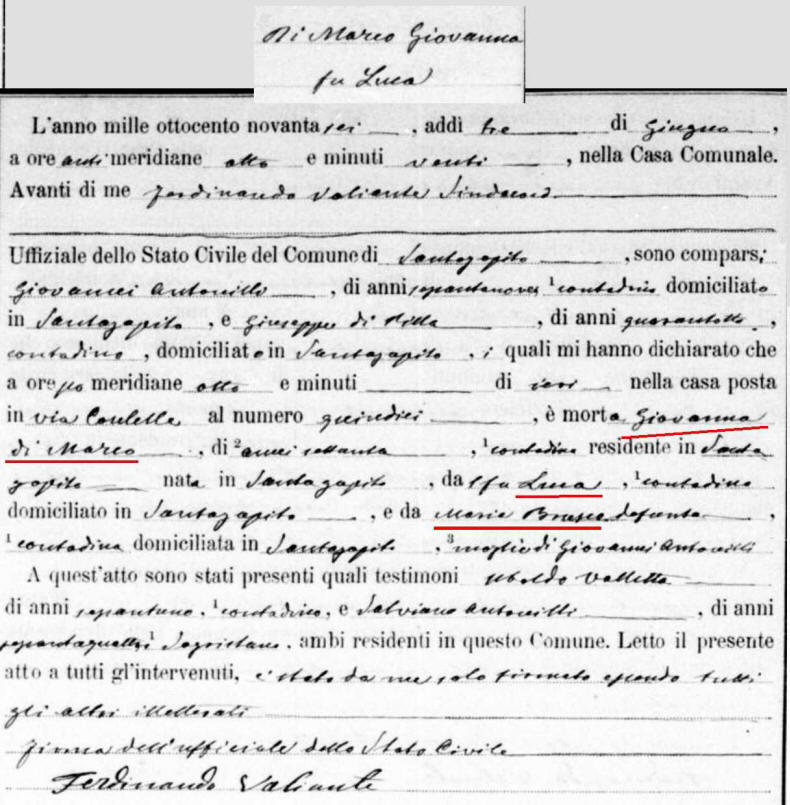 Di Marco Giovanna
fu Luca
L'anno mille ottocento novantasei, addì tre di Giugno,
a ore antimeridiane otto e minuti venti, nella Casa Comunale.
Avanti di me Ferdinando Valiente Sindaco
Uffiziale dello Stato Civile del Comune di Santagapito, sono comparsi
Giovanni Antonilli, di anni sepantanove, ¹contadino domiciliato
in Santagapito, e Giuseppe di, di anni quarantotto,
contadino, domiciliato in Santagapito, i quali mi hanno dichiarato che
a ore pomeridiane otto e minuti di ieri nella casa posta
in via al numero quindici, è morta Giovanna
di Marco, di ²anni settanta, ¹contadina residente in Santa
gapito nata in Santagapito, da fu Luca, ¹contadino
domiciliato in Santagapito, e da Maria defunta,
¹contadina domiciliata in Santagapito, ³moglie di Giovanni Antonilli
A quest'atto sono stati presenti quali testimoni Ubaldo Valletta
di anni sepantuno, ¹contadino, e Salviano Antonilli, di anni
sepantaquattro ¹Sagristano, ambi residenti in questo Comune. Letto il presente
atto a tutti gl'intervenuti, è stato da me solo firmato essendo tutti
gli altri illetterati
Firma dell'uffiziale dello Stato Civile
Ferdinando Valiante